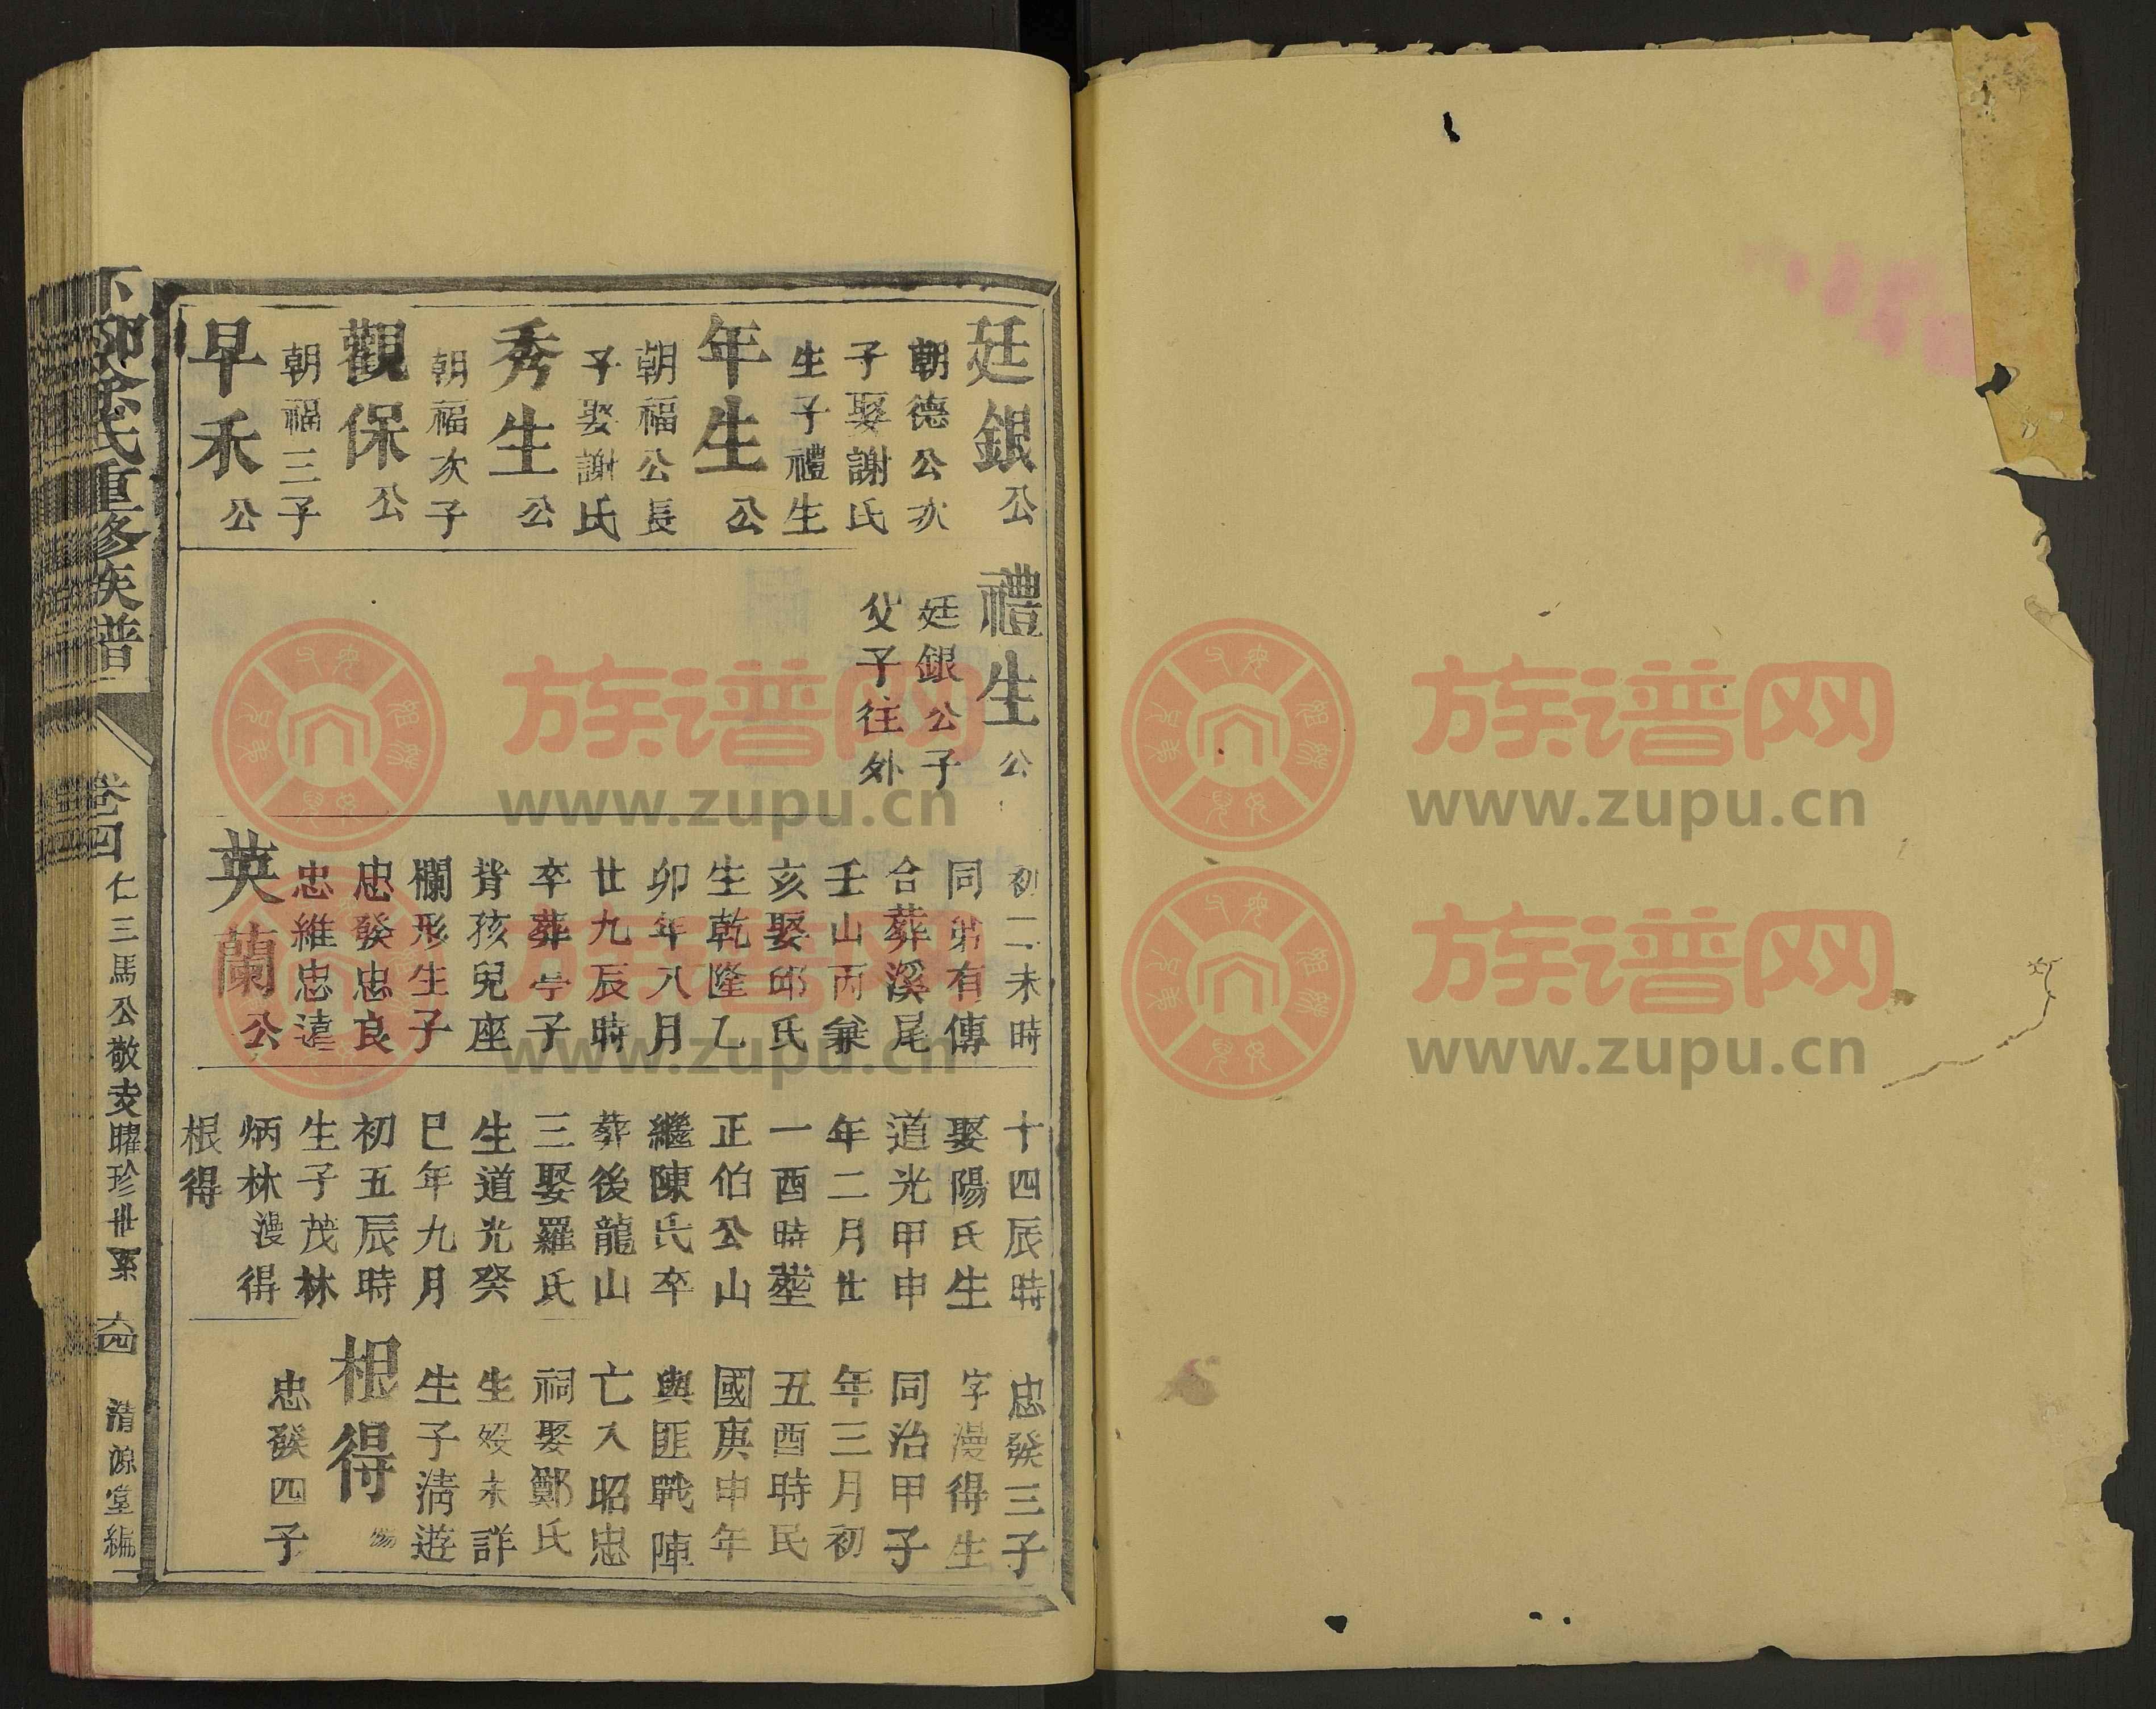 廷銀公
朝德公次
子娶謝氏
生子禮生
年生公
朝福公長
子娶謝氏
秀生公
朝福次子
觀保公
朝福三子
早禾公
禮生公
廷銀公子
父子往外
初一未時
同弟有傳
合葬溪尾
壬山丙兼
亥娶邱氏
生乾隆乙
卯年八月
廿九辰時
卒葬亭子
背孩兒座
欄形生子
忠發忠良
忠維忠遠
英蘭公
十四辰時
娶陽氏生
道光甲申
年二月廿
一酉時塟
正伯公山
繼陳氏卒
葬後龍山
三娶羅氏
生道光癸
巳年九月
初五辰時
生子茂林
炳林漫得
根得
忠發三子
字漫得生
同治甲子
年三月初
丑酉時民
國庚申年
與匪戰陣
亡入昭忠
祠娶鄭氏
生歿未詳
生子淸遊
根得
忠發四子
氏重修族譜
卷四
仁三馬公敬支曜珍卋系
六四
清源堂編
族谱网
www.zupu.cn
族谱网
www.zupu.cn
族谱网
www.zupu.cn
族谱网
www.zupu.cn